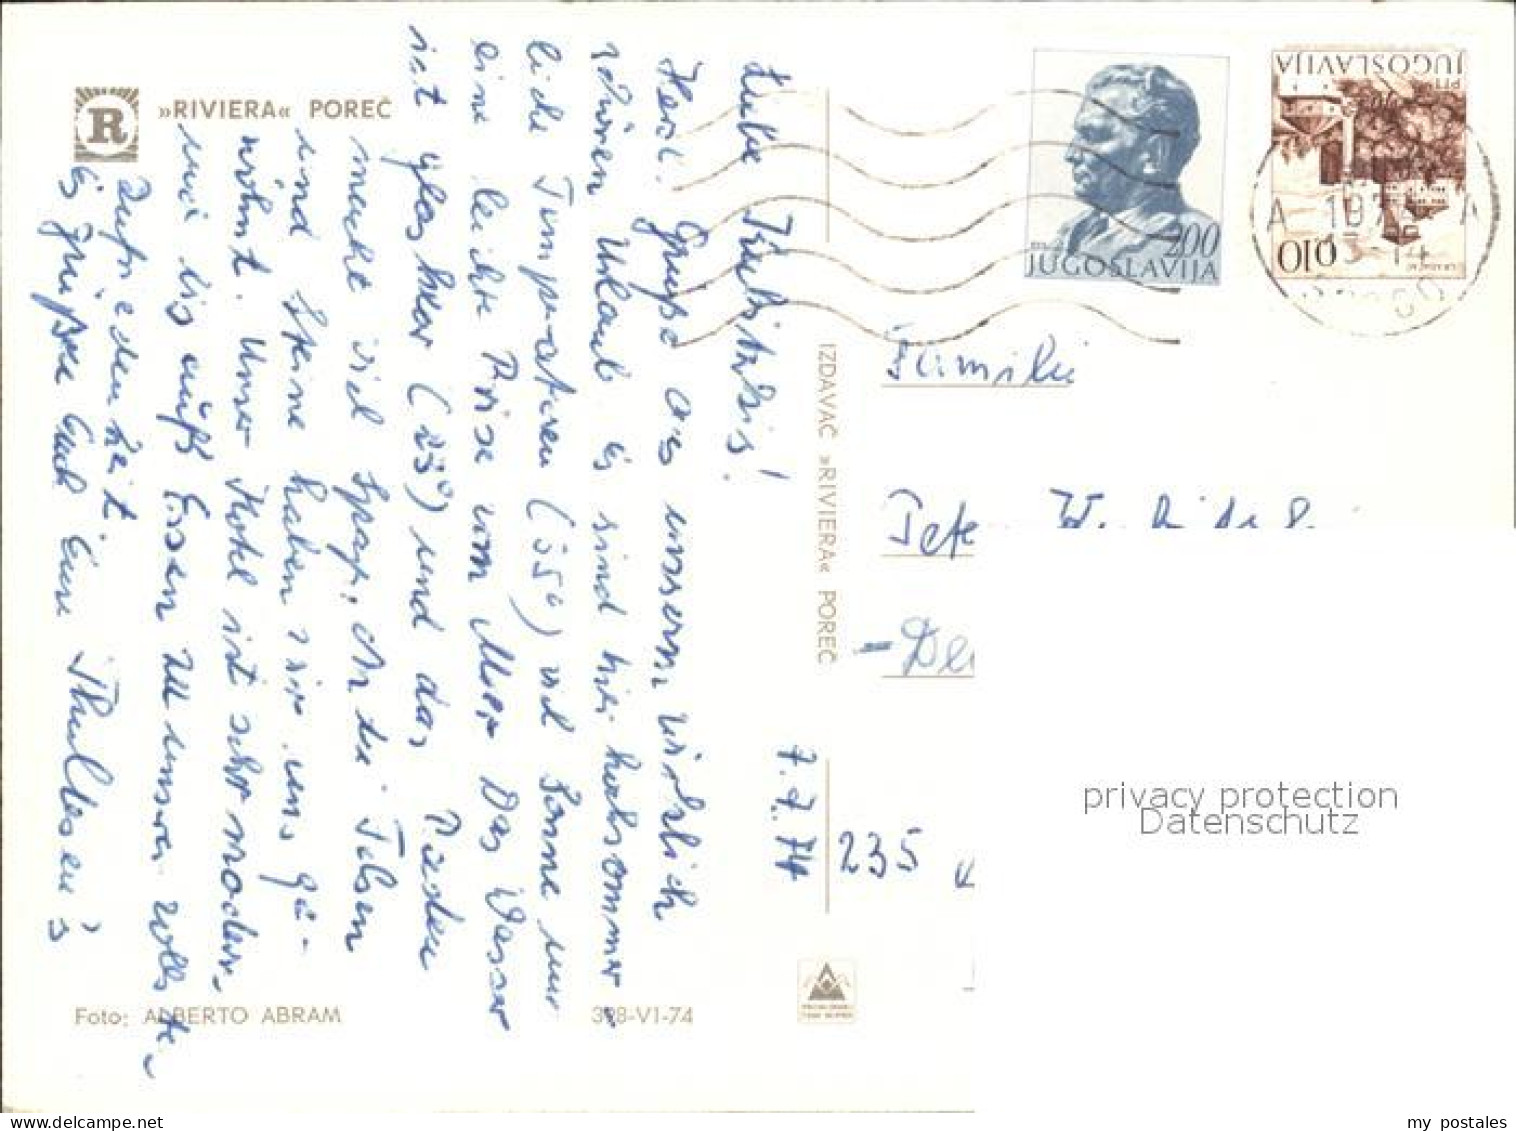 »RIVIERA« POREČ
R
7.7.74
Herzl. Grüße aus unserm wirklich
schönen Urlaub. Es sind hier hochsommer-
liche Temperaturen (35°) viel Sonne nur
eine leichte Brise vom Meer Das Wasser
ist glasklar (23°) und das
macht viel Spaß. An die Felsen
und Steine haben wir uns ge-
wöhnt. Unser Hotel ist sehr modern,
und bis aufs Essen zu unserer vollste-
Zufriedenheit.
Es grüßen Euch Eure
Foto: ALBERTO ABRAM
398-VI-74
IZDAVAČ »RIVIERA« POREČ
2.00
JUGOSLAVIJA
PTT
JUGOSLAVIJA
0,10
Familie
235
privacy protection
Datenschutz
my postales